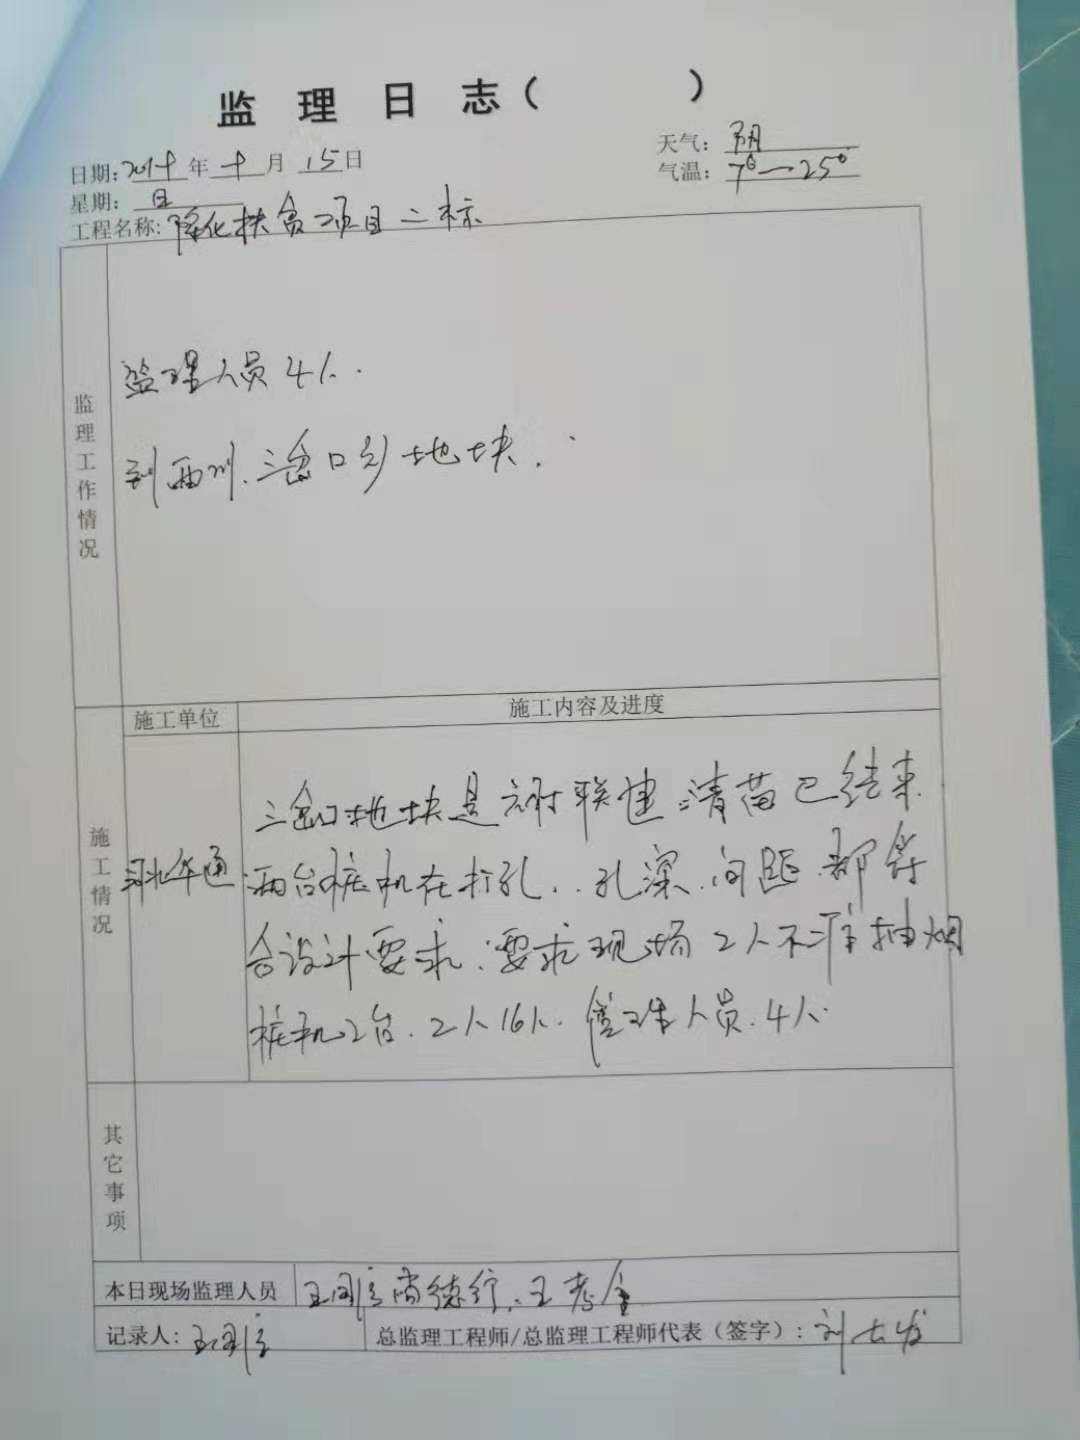 监理日志（ ）
日期：201 年十月15日
天气：阴
星期：日
气温：7°—25°
工程名称：隆化扶贫项目二标
监理工作情况
监理人员4人.
到西川、三岔口乡地块.
施工单位
施工内容及进度
施工情况
河北华通
三岔口地块是 联建 清苗已结束
两台桩机在打孔..孔深.间距.都符
合设计要求.要求现场工人不准抽烟
桩机2台.工人16人.管理人员.4人.
其它事项
本日现场监理人员
王国 尚德 、王 
记录人：王国
总监理工程师/总监理工程师代表（签字）：刘